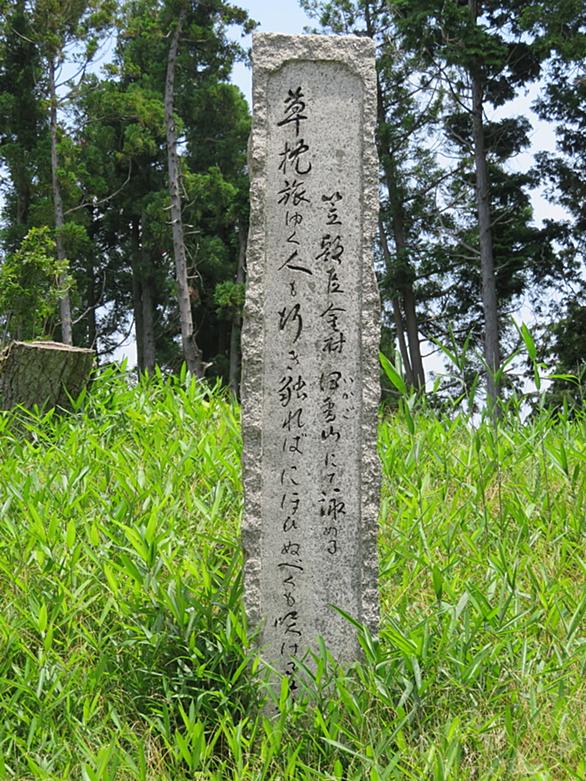 笠朝臣金村 伊香山にて詠める
いかご
草枕旅ゆく人も行き触ればにほひぬべくも咲ける